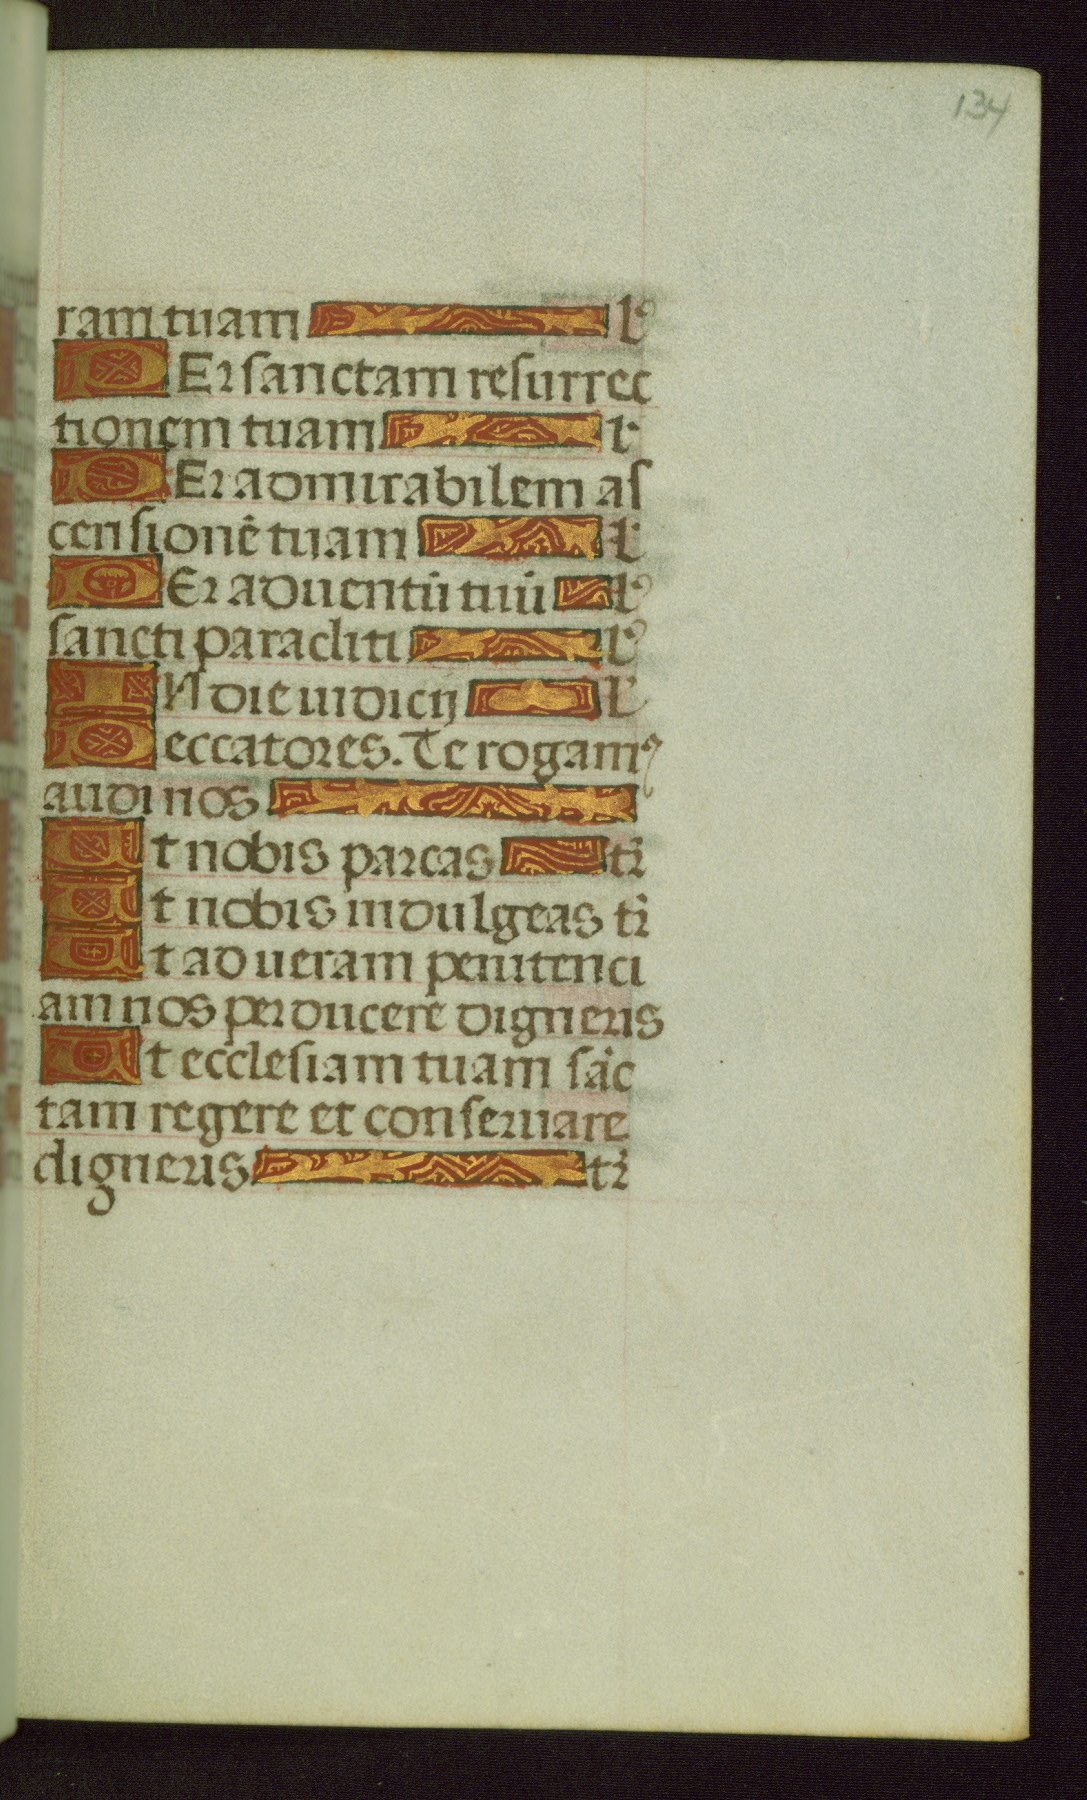 134
ram tuam l
PEr sanctam resurrec
tionem tuam l
PEr admirabilem as
censionē tuam l
PEr aduentū tuū l
sancti paracliti l
IN die iudicij l
Peccatores. Te rogamꝰ
audi nos
Et nobis parcas tr̄
Et nobis indulgeas tr̄
Et ad ueram penitenci
am nos perducere digneris
Et ecclesiam tuam sāc
tam regere et conseruare
digneris tr̄